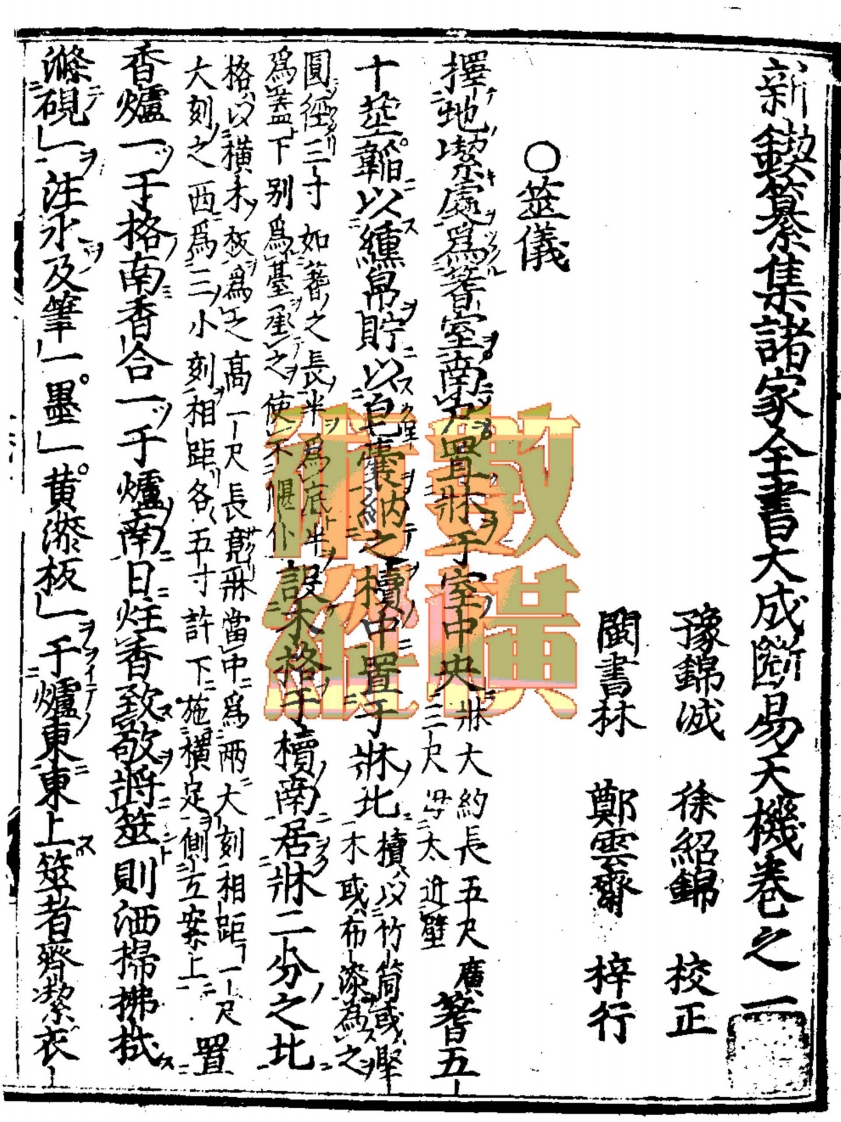 新鍥纂集諸家全書大成斷易天機卷之一
豫錦誠 徐紹錦 校正
閩書林 鄭雲齋 梓行
○筮儀
擇地潔處為蓍室南戶置牀于室中央 牀大約長五尺廣三尺毋太近壁 蓍五
十莖韜以纁帛貯以皂囊納之櫝中置于牀北 櫝以竹筒或堅木或布漆為之
圓徑三寸如蓍之長半為底半為蓋下別為臺函之使不偃仆 設木格于櫝南居牀二分之北
格以橫木板為之高一尺長竟牀當中為兩大刻相距一尺大刻之西為三小刻相距各五寸許下施橫足側立案上 置
香爐一于格南香合一于爐南日炷香致敬將筮則洒掃拂拭
滌硯一注水及筆一墨一黃漆板一于爐東東上筮者齊潔衣
術數縱橫